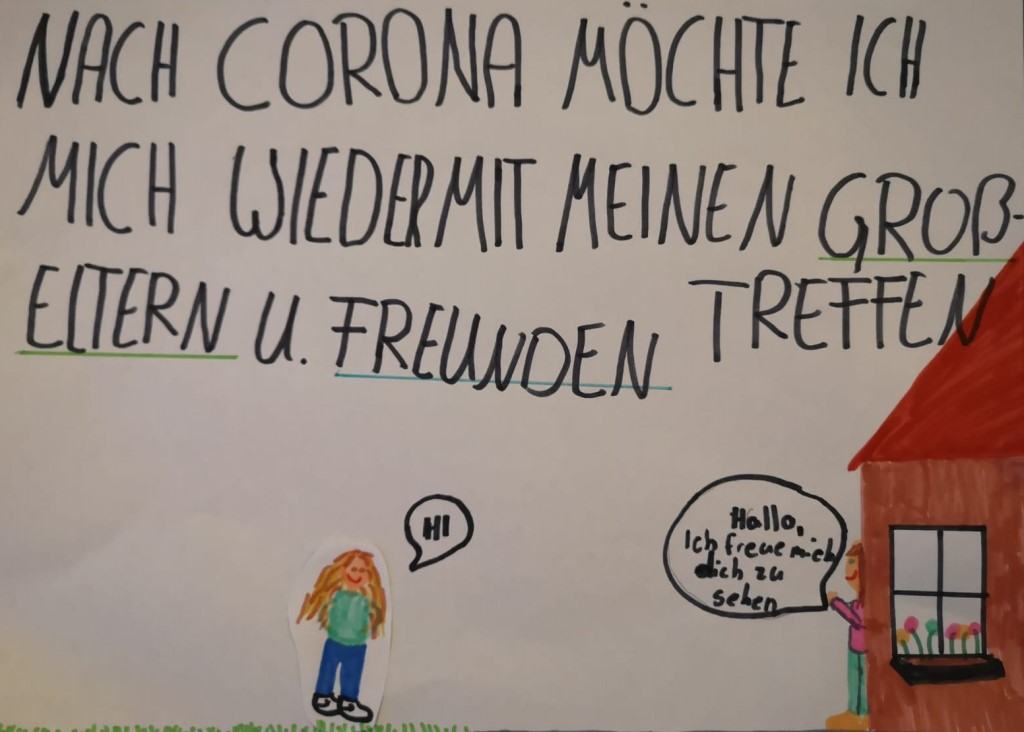 NACH CORONA MÖCHTE ICH
MICH WIEDER MIT MEINEN GROß-
ELTERN U. FREUNDEN TREFFEN
HI
Hallo,
Ich freue mich
dich zu
sehen